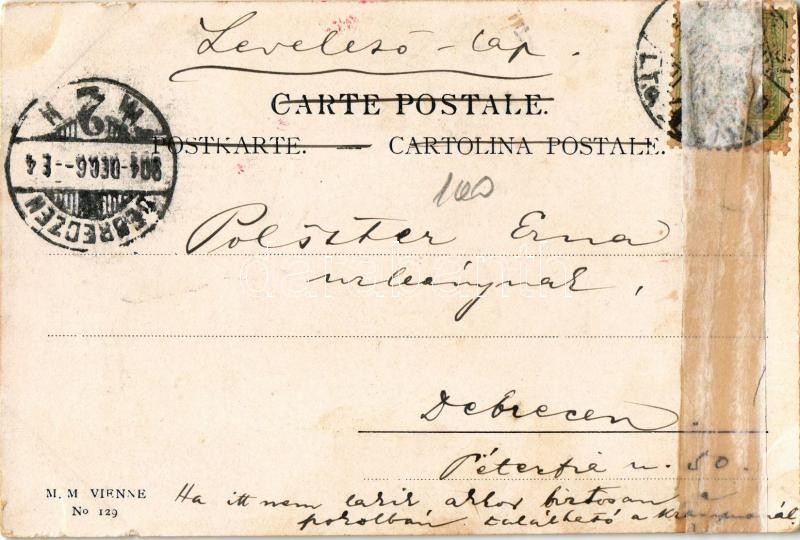 Levelező-lap.
CARTE POSTALE.
POSTKARTE. — CARTOLINA POSTALE.
DEBRECZEN
904 DEC. 6 - É. 4
M 2 H
100
Polszter Erna
urleánynak,
Debrecen.
Péterfia u. 50.
M. M VIENNE
No 129
Ha itt nem lakik akkor biztosan a
pokolban található a Krampusnál.
darabanth